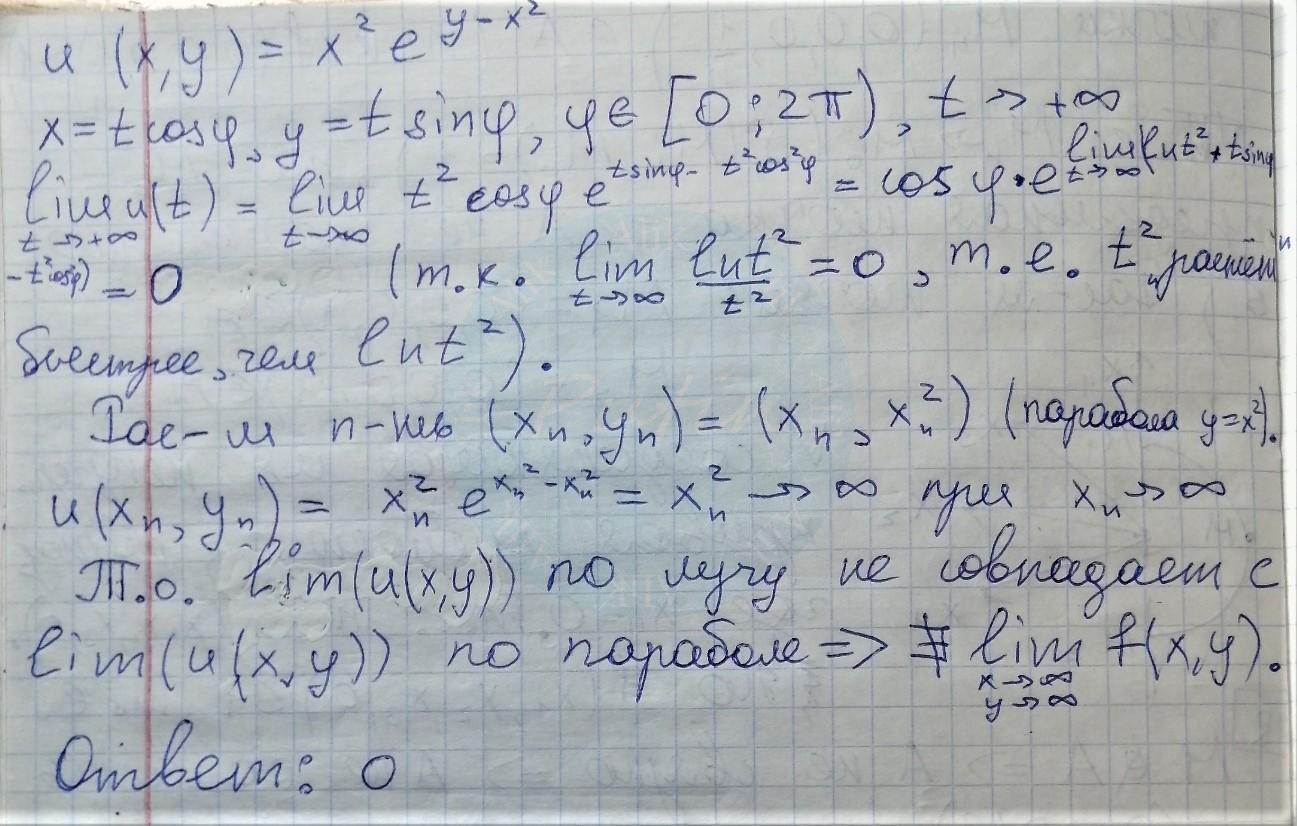 u (x,y) = x² e^{y-x²}
x = t cosφ, y = t sinφ, φ ∈ [0; 2π), t → +∞
lim_{t→+∞} u(t) = lim_{t→∞} t² cosφ e^{t sinφ - t² cos²φ} = cosφ · e^{lim_{t→∞}(ln t² + t sinφ
- t² cosφ)} = 0 (т.к. lim_{t→∞} ln t²/t² = 0, т.е. t² „растёт"
быстрее, чем ln t²).
Рас-м п-ть (xₙ, yₙ) = (xₙ, xₙ²) (парабола y=x²).
u(xₙ, yₙ) = xₙ² e^{xₙ² - xₙ²} = xₙ² → ∞ при xₙ → ∞
Т.о. lim(u(x,y)) по лучу не совпадает с
lim(u(x,y)) по параболе => ∄ lim_{x→∞ y→∞} f(x,y).
Ответ: 0